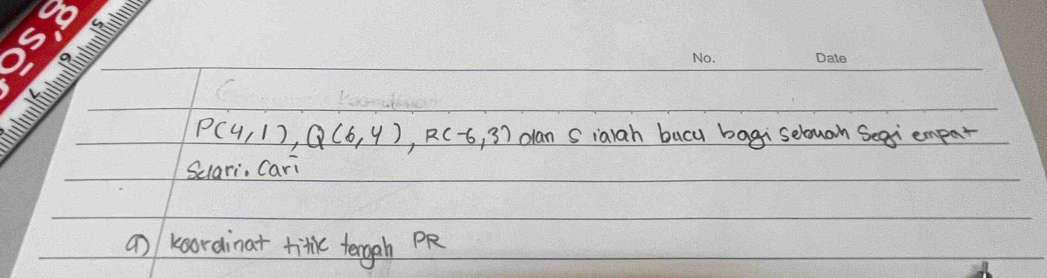 No. Date
P(4,1), Q(6,4), R(-6,3) dan S ialah bucu bagi sebuah segi empat
selari. Cari
a) koordinat titik tengah PR